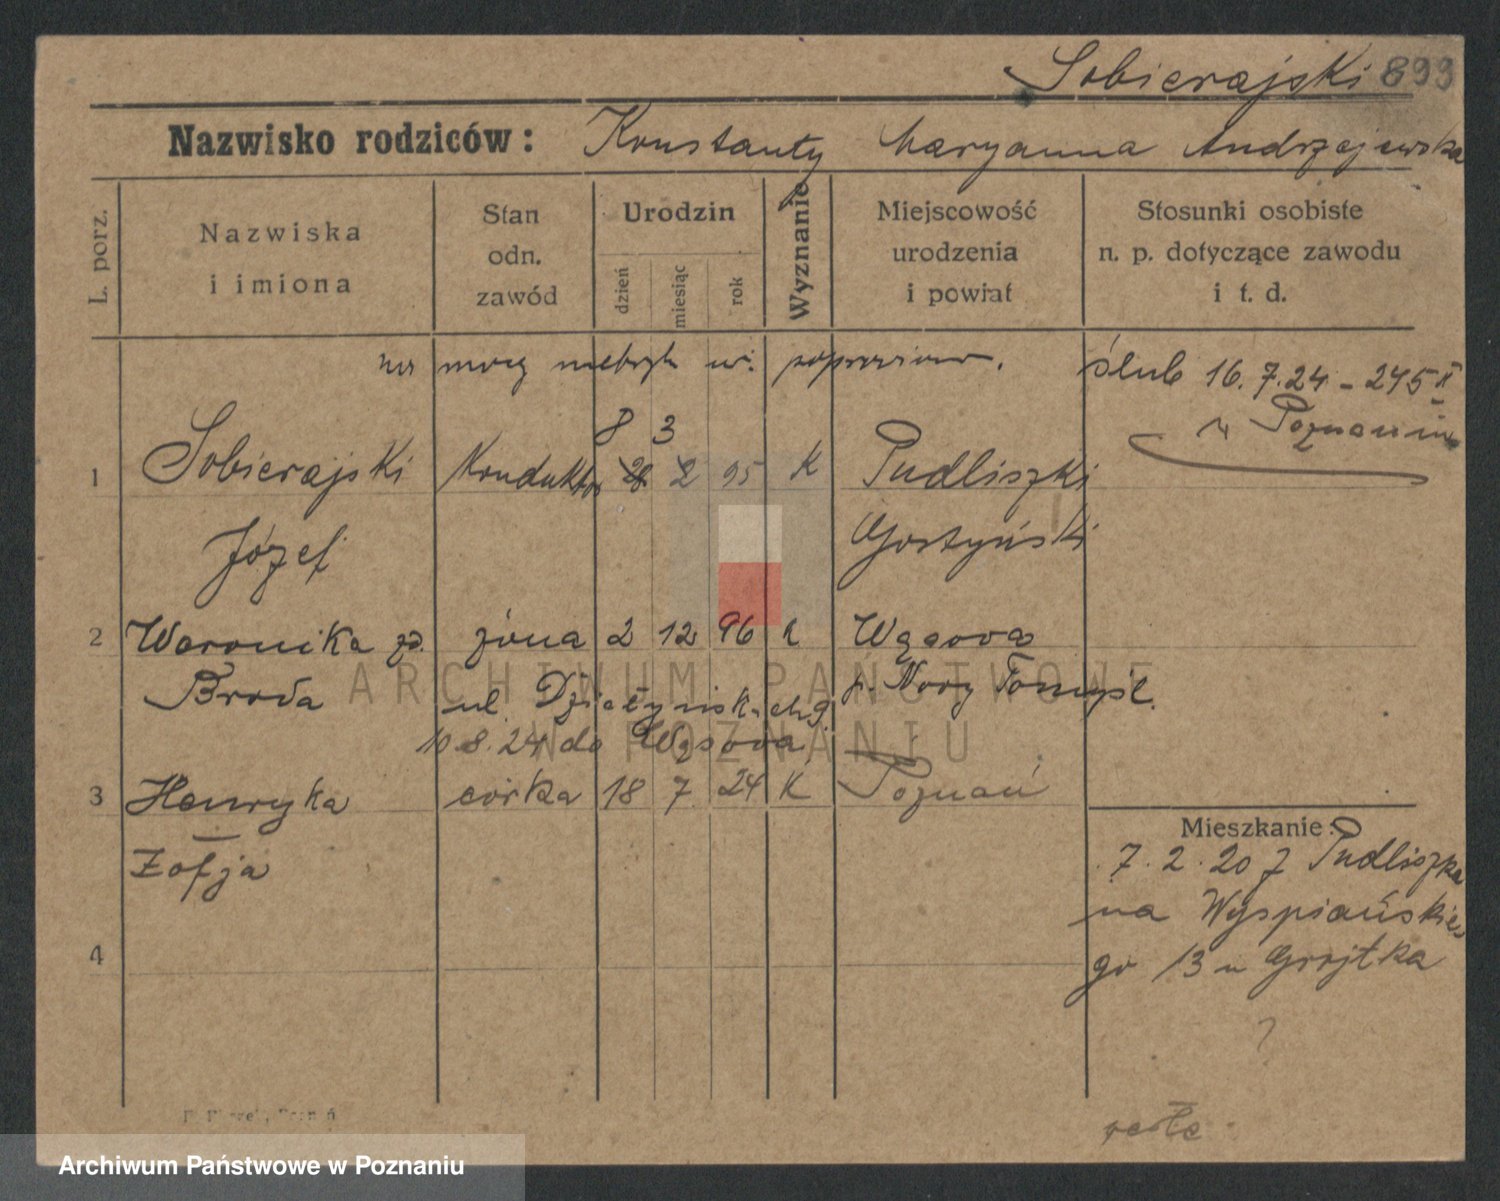 Sobierajski 899
Nazwisko rodziców: Konstanty Maryanna Andrzejewska
L. porz.
Nazwiska i imiona
Stan odn. zawód
Urodzin
dzień
miesiąc
rok
Wyznanie
Miejscowość urodzenia i powiat
Stosunki osobiste n. p. dotyczące zawodu i t. d.
na mocy metryk poprawiono.
ślub 16.7.24 - 245 II
w Poznaniu
8 3
1 Sobierajski Konduktor 28 2 95 K Pudliszki
Józef Gostyński
2 Weronika żona 2 12 96 K Wąsowa
Broda ul. Działyńskich 9. p. Nowy Tomyśl.
10.8.24 do Wąsowa
3 Henryka córka 18 7 24 K Poznań
Zofja
Mieszkanie:
7.2.20 z Pudliszka
na Wyspiańskie
go 13 u Grojtka
4
?
ARCHIWUM PAŃSTWOWE
W POZNANIU
Archiwum Państwowe w Poznaniu